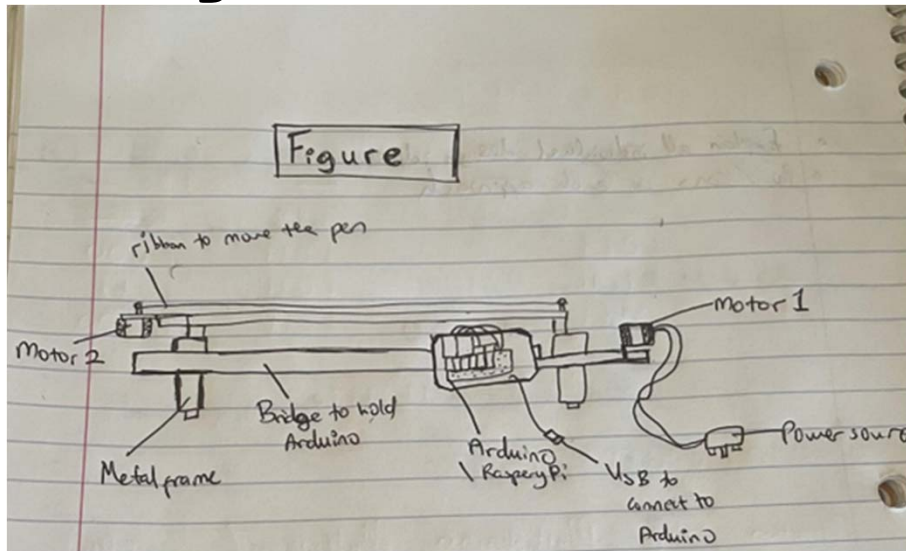 Figure
ribbon to move tee pen
Motor 1
Motor 2
Bridge to hold
Arduino
Metal frame
Arduino
\ RasperyPi
USB to
connect to
Arduino
Power sourc